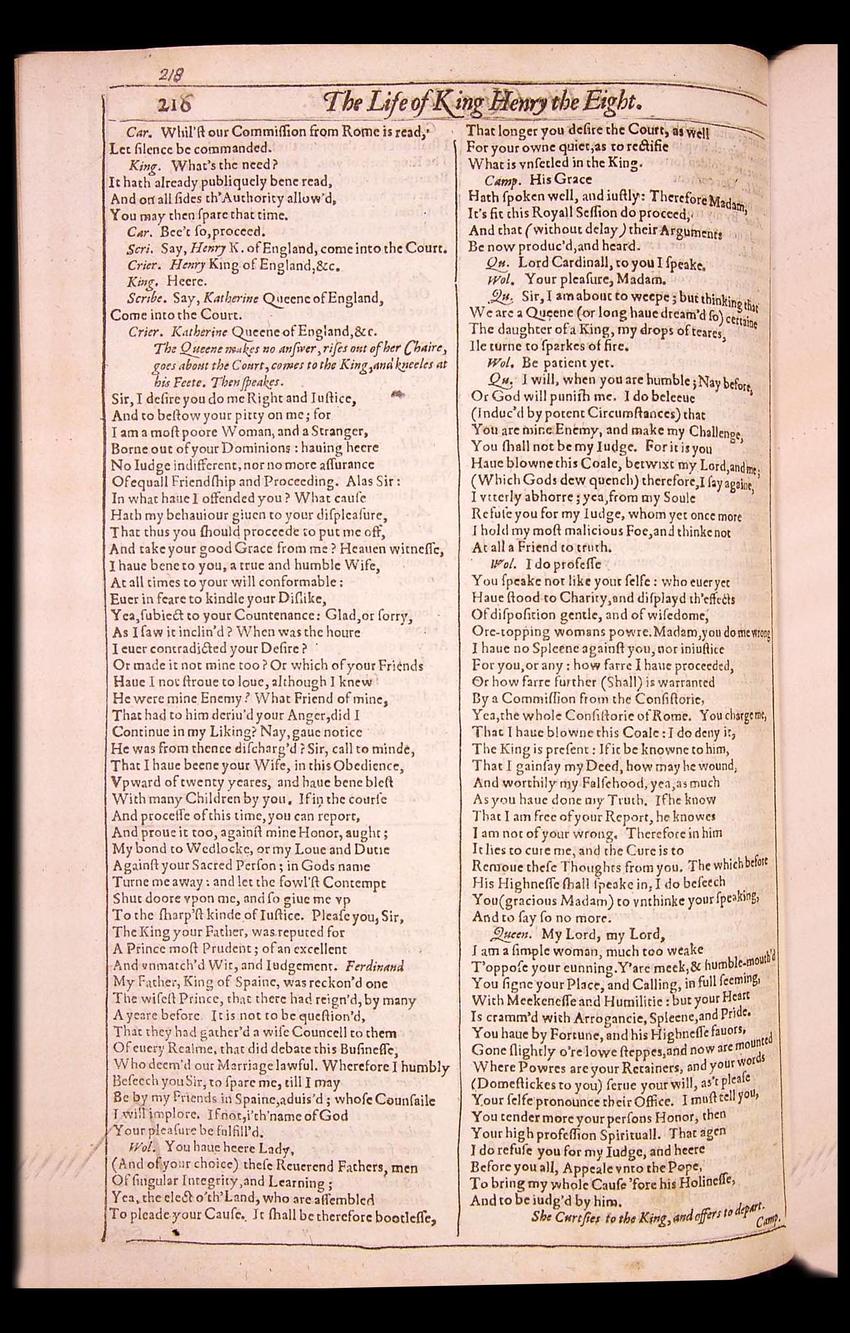 218
216
The Life of King Henry the Eight.
Car. Whil'ſt our Commiſſion from Rome is read,
Let ſilence be commanded.
King. What's the need?
It hath already publiquely bene read,
And on all ſides th'Authority allow'd,
You may then ſpare that time.
Car. Bee't ſo, proceed.
Scri. Say, Henry K. of England, come into the Court.
Crier. Henry King of England, &c.
King. Heere.
Scribe. Say, Katherine Queene of England,
Come into the Court.
Crier. Katherine Queene of England, &c.
The Queene makes no anſwer, riſes out of her Chaire,
goes about the Court, comes to the King, and kneeles at
his Feete. Then ſpeakes.
Sir, I deſire you do me Right and Iuſtice,
And to beſtow your pitty on me; for
I am a moſt poore Woman, and a Stranger,
Borne out of your Dominions: hauing heere
No Iudge indifferent, nor no more aſſurance
Of equall Friendſhip and Proceeding. Alas Sir:
In what haue I offended you? What cauſe
Hath my behauiour giuen to your diſpleaſure,
That thus you ſhould proceede to put me off,
And take your good Grace from me? Heauen witneſſe,
I haue bene to you, a true and humble Wife,
At all times to your will conformable:
Euer in feare to kindle your Diſlike,
Yea, ſubiect to your Countenance: Glad, or ſorry,
As I ſaw it inclin'd? When was the houre
I euer contradicted your Deſire?
Or made it not mine too? Or which of your Friends
Haue I not ſtroue to loue, although I knew
He were mine Enemy? What Friend of mine,
That had to him deriu'd your Anger, did I
Continue in my Liking? Nay, gaue notice
He was from thence diſcharg'd? Sir, call to minde,
That I haue beene your Wife, in this Obedience,
Vpward of twenty yeares, and haue bene bleſt
With many Children by you. If in the courſe
And proceſſe of this time, you can report,
And proue it too, againſt mine Honor, aught;
My bond to Wedlocke, or my Loue and Dutie
Againſt your Sacred Perſon; in Gods name
Turne me away: and let the fowl'ſt Contempt
Shut doore vpon me, and ſo giue me vp
To the ſharp'ſt kinde of Iuſtice. Pleaſe you, Sir,
The King your Father, was reputed for
A Prince moſt Prudent; of an excellent
And vnmatch'd Wit, and Iudgement. Ferdinand
My Father, King of Spaine, was reckon'd one
The wiſeſt Prince, that there had reign'd, by many
A yeare before. It is not to be queſtion'd,
That they had gather'd a wiſe Councell to them
Of euery Realme, that did debate this Buſineſſe,
Who deem'd our Marriage lawful. Wherefore I humbly
Beſeech you Sir, to ſpare me, till I may
Be by my Friends in Spaine, aduis'd; whoſe Counſaile
I will implore. If not, i'th'name of God
Your pleaſure be fulfill'd.
Wol. You haue heere Lady,
(And of your choice) theſe Reuerend Fathers, men
Of ſingular Integrity, and Learning;
Yea, the elect o'th'Land, who are aſſembled
To pleade your Cauſe. It ſhall be therefore bootleſſe,
That longer you deſire the Court, as well
For your owne quiet, as to rectifie
What is vnſetled in the King.
Camp. His Grace
Hath ſpoken well, and iuſtly: Therefore Madam,
It's fit this Royall Seſſion do proceed,
And that (without delay) their Arguments
Be now produc'd, and heard.
Qu. Lord Cardinall, to you I ſpeake.
Wol. Your pleaſure, Madam.
Qu. Sir, I am about to weepe; but thinking that
We are a Queene (or long haue dream'd ſo) certaine
The daughter of a King, my drops of teares,
Ile turne to ſparkes of fire.
Wol. Be patient yet.
Qu. I will, when you are humble; Nay before,
Or God will puniſh me. I do beleeue
(Induc'd by potent Circumſtances) that
You are mine Enemy, and make my Challenge,
You ſhall not be my Iudge. For it is you
Haue blowne this Coale, betwixt my Lord, and me;
(Which Gods dew quench) therefore, I ſay againe,
I vtterly abhorre; yea, from my Soule
Refuſe you for my Iudge, whom yet once more
I hold my moſt malicious Foe, and thinke not
At all a Friend to truth.
Wol. I do profeſſe
You ſpeake not like your ſelfe: who euer yet
Haue ſtood to Charity, and diſplayd th'effects
Of diſpoſition gentle, and of wiſedome,
Ore-topping womans powre. Madam, you do me wrong
I haue no Spleene againſt you, nor iniuſtice
For you, or any: how farre I haue proceeded,
Or how farre further (Shall) is warranted
By a Commiſſion from the Conſiſtorie,
Yea, the whole Conſiſtorie of Rome. You charge me,
That I haue blowne this Coale: I do deny it,
The King is preſent: If it be knowne to him,
That I gainſay my Deed, how may he wound,
And worthily my Falſehood, yea, as much
As you haue done my Truth. If he know
That I am free of your Report, he knowes
I am not of your wrong. Therefore in him
It lies to cure me, and the Cure is to
Remoue theſe Thoughts from you. The which before
His Highneſſe ſhall ſpeake in, I do beſeech
You (gracious Madam) to vnthinke your ſpeaking,
And to ſay ſo no more.
Queen. My Lord, my Lord,
I am a ſimple woman, much too weake
T'oppoſe your cunning. Y'are meek, & humble-mouth'd
You ſigne your Place, and Calling, in full ſeeming,
With Meekeneſſe and Humilitie: but your Heart
Is cramm'd with Arrogancie, Spleene, and Pride.
You haue by Fortune, and his Highneſſe fauors,
Gone ſlightly o're lowe ſteppes, and now are mounted
Where Powres are your Retainers, and your words
(Domeſtickes to you) ſerue your will, as't pleaſe
Your ſelfe pronounce their Office. I muſt tell you,
You tender more your perſons Honor, then
Your high profeſſion Spirituall. That agen
I do refuſe you for my Iudge, and heere
Before you all, Appeale vnto the Pope,
To bring my whole Cauſe 'fore his Holineſſe,
And to be iudg'd by him.
She Curtſies to the King, and offers to depart.
Camp.